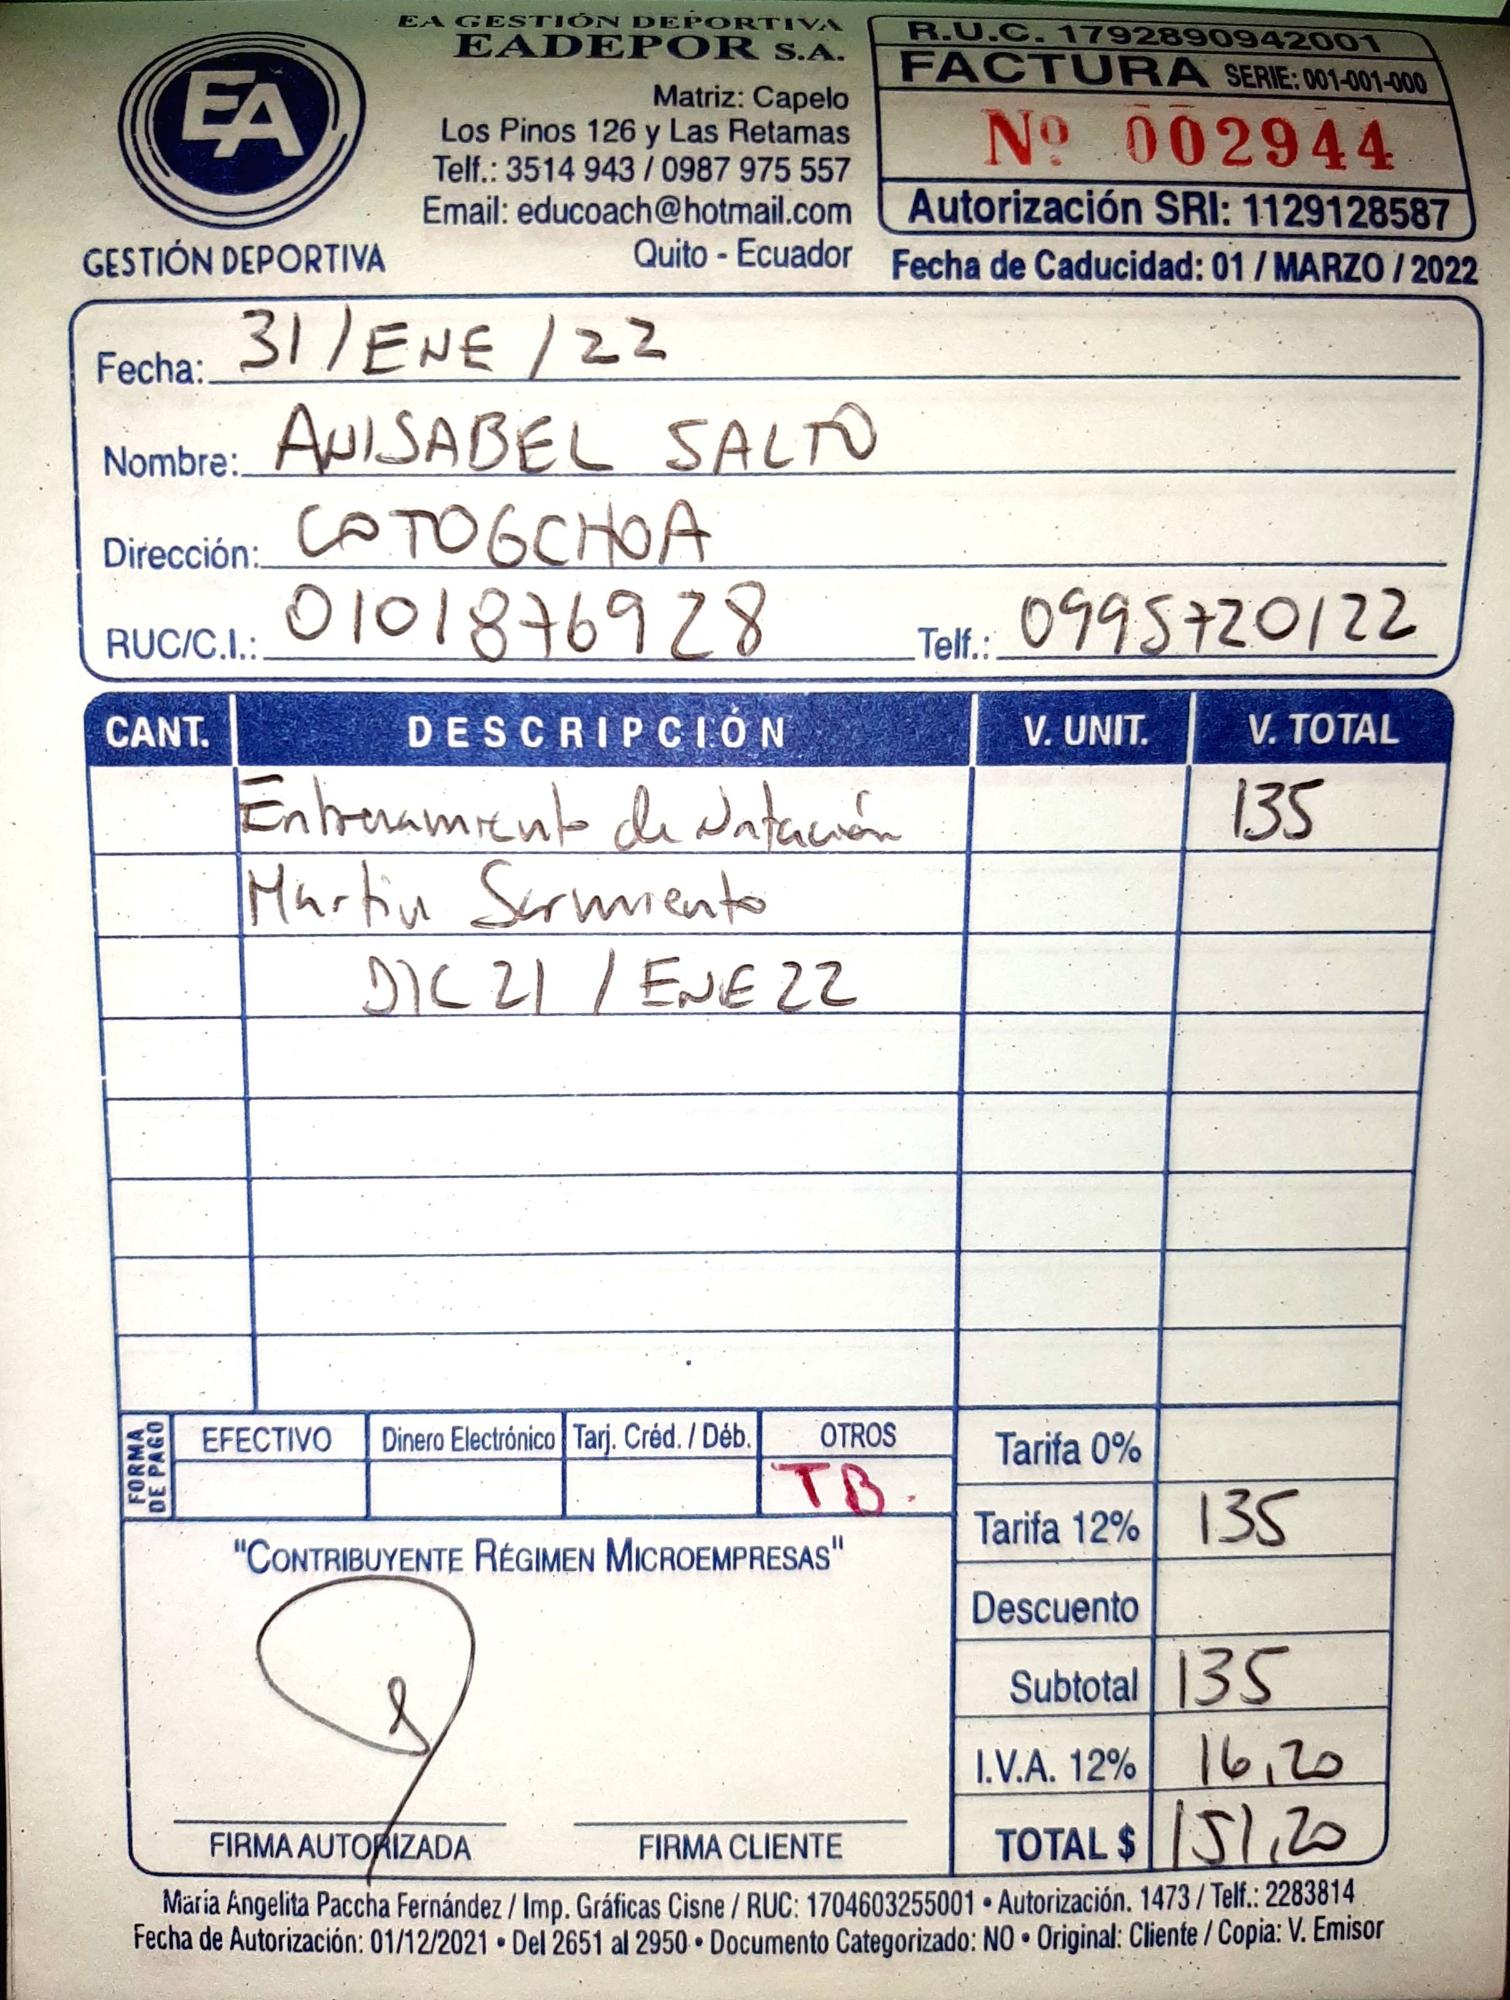 EA GESTIÓN DEPORTIVA
EADEPOR S.A.
Matriz: Capelo
Los Pinos 126 y Las Retamas
Telf.: 3514 943 / 0987 975 557
Email: educoach@hotmail.com
Quito - Ecuador
EA
GESTIÓN DEPORTIVA
R.U.C. 1792890942001
FACTURA SERIE: 001-001-000
Nº 002944
Autorización SRI: 1129128587
Fecha de Caducidad: 01 / MARZO / 2022
Fecha: 31 / ENE / 22
Nombre: ANISABEL SALTO
Dirección: COTOGCHOA
RUC/C.I.: 0101876928 Telf.: 0995720122
CANT. DESCRIPCIÓN V. UNIT. V. TOTAL
Entrenamiento de Natación 135
Martin Sarmiento
DIC 21 / ENE 22
FORMA DE PAGO
EFECTIVO Dinero Electrónico Tarj. Créd. / Déb. OTROS
TB.
Tarifa 0%
Tarifa 12% 135
Descuento
Subtotal 135
I.V.A. 12% 16,20
TOTAL $ 151,20
"CONTRIBUYENTE RÉGIMEN MICROEMPRESAS"
FIRMA AUTORIZADA FIRMA CLIENTE
María Angelita Paccha Fernández / Imp. Gráficas Cisne / RUC: 1704603255001 • Autorización. 1473 / Telf.: 2283814
Fecha de Autorización: 01/12/2021 • Del 2651 al 2950 • Documento Categorizado: NO • Original: Cliente / Copia: V. Emisor